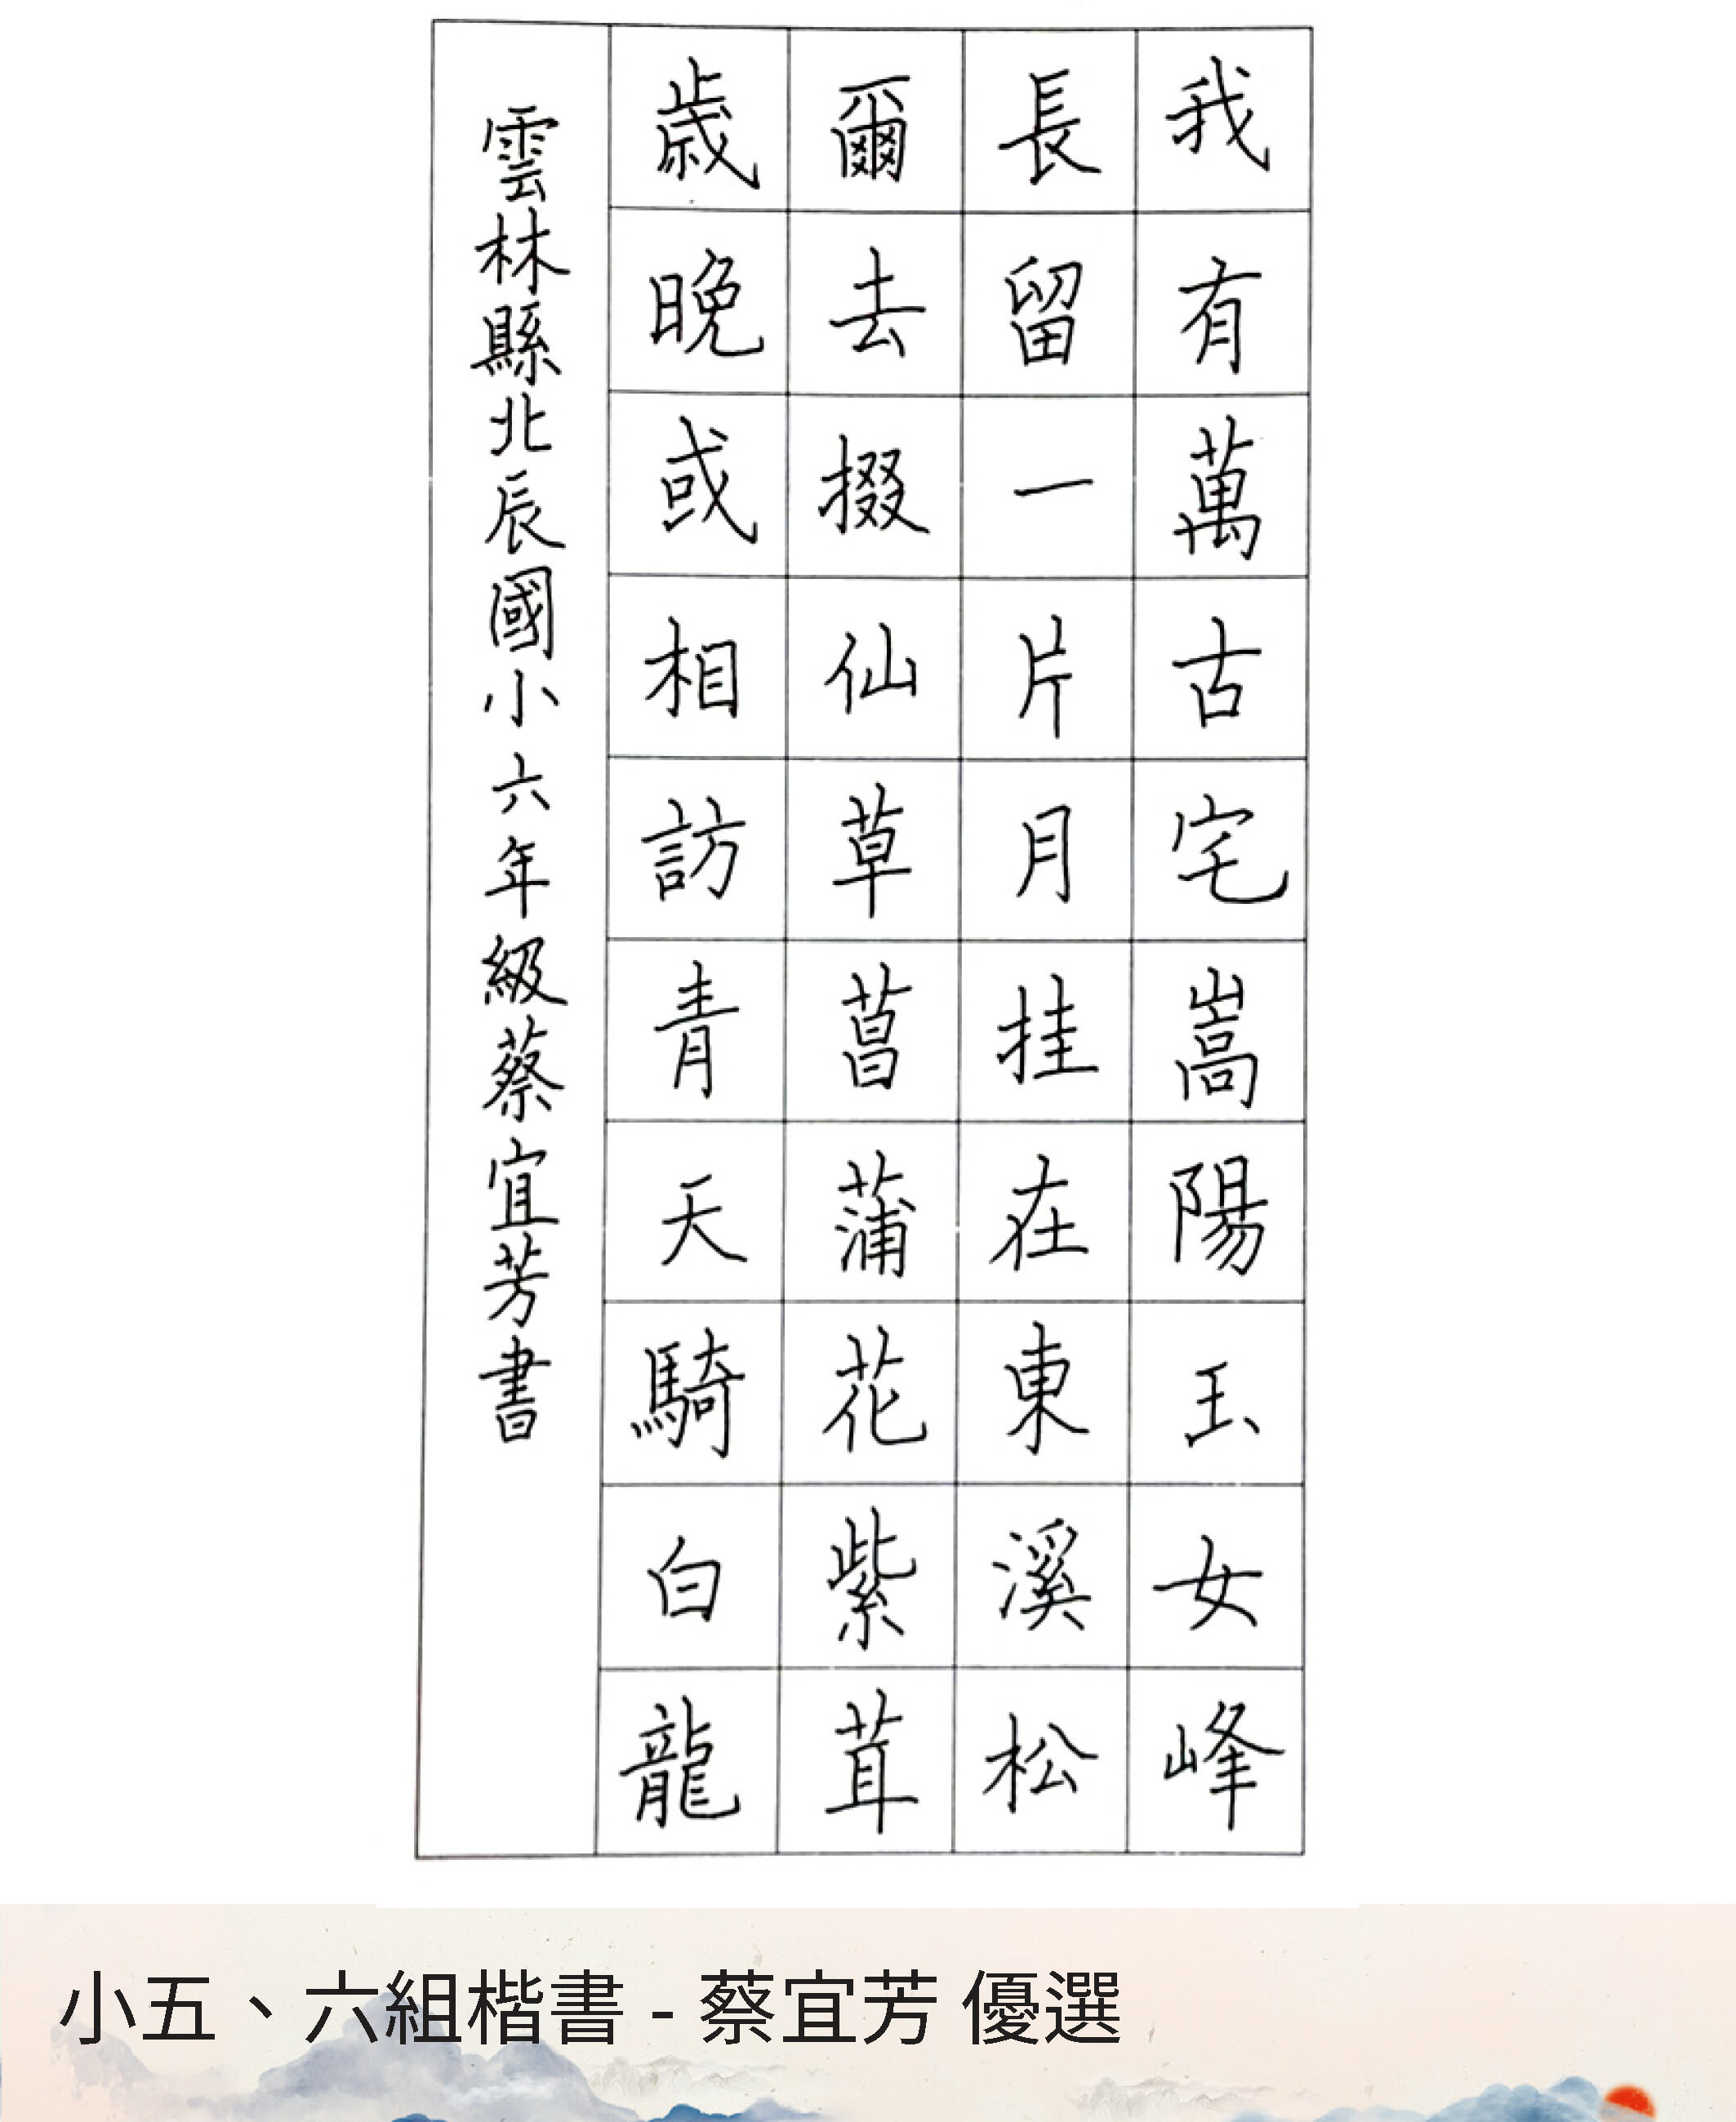 我有萬古宅嵩陽玉女峰
長留一片月挂在東溪松
爾去掇仙草菖蒲花紫茸
歲晚或相訪青天騎白龍
雲林縣北辰國小六年級蔡宜芳書
小五、六組楷書 - 蔡宜芳 優選